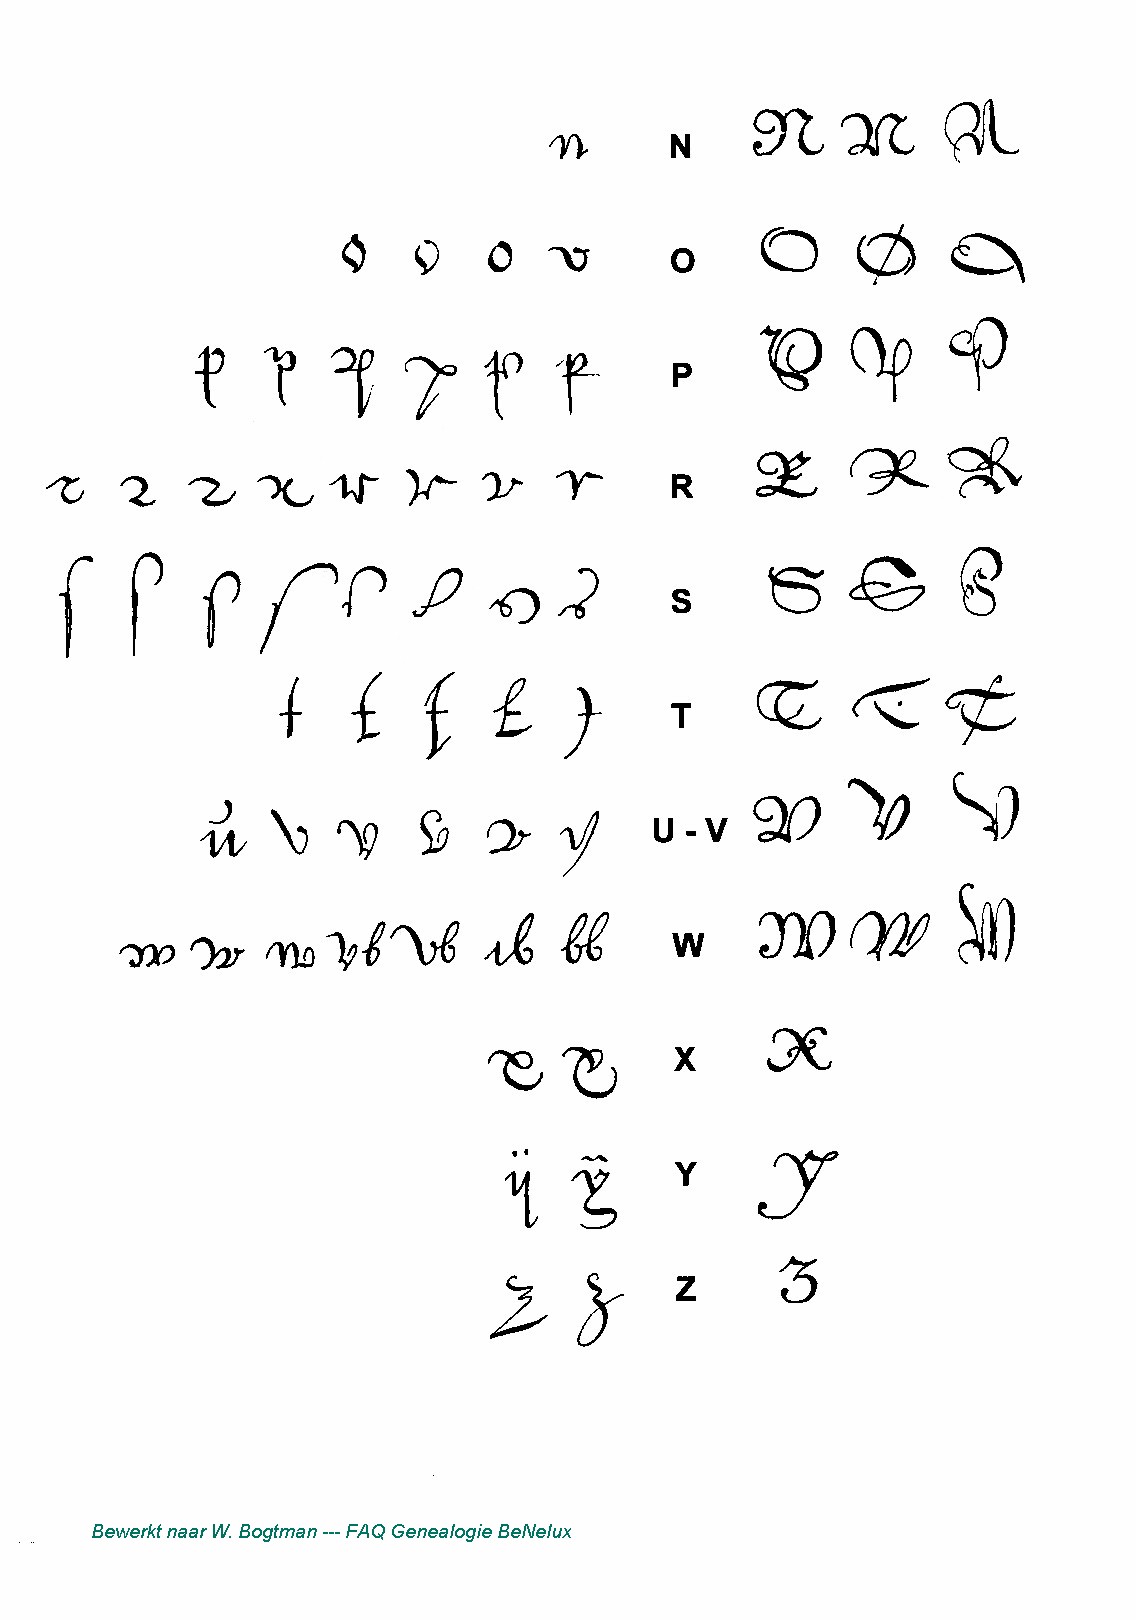 n N N N N
o o o o O O O O
p p p p p p P P P P
r r r r r r r r R R R R
s s s s s s s s S S S S
t t t t t T T T T
u v v v v v U - V V V V
w w w w w w w W W W W
x x X X
ÿ ÿ Y Y
z z Z Z
Bewerkt naar W. Bogtman --- FAQ Genealogie BeNelux